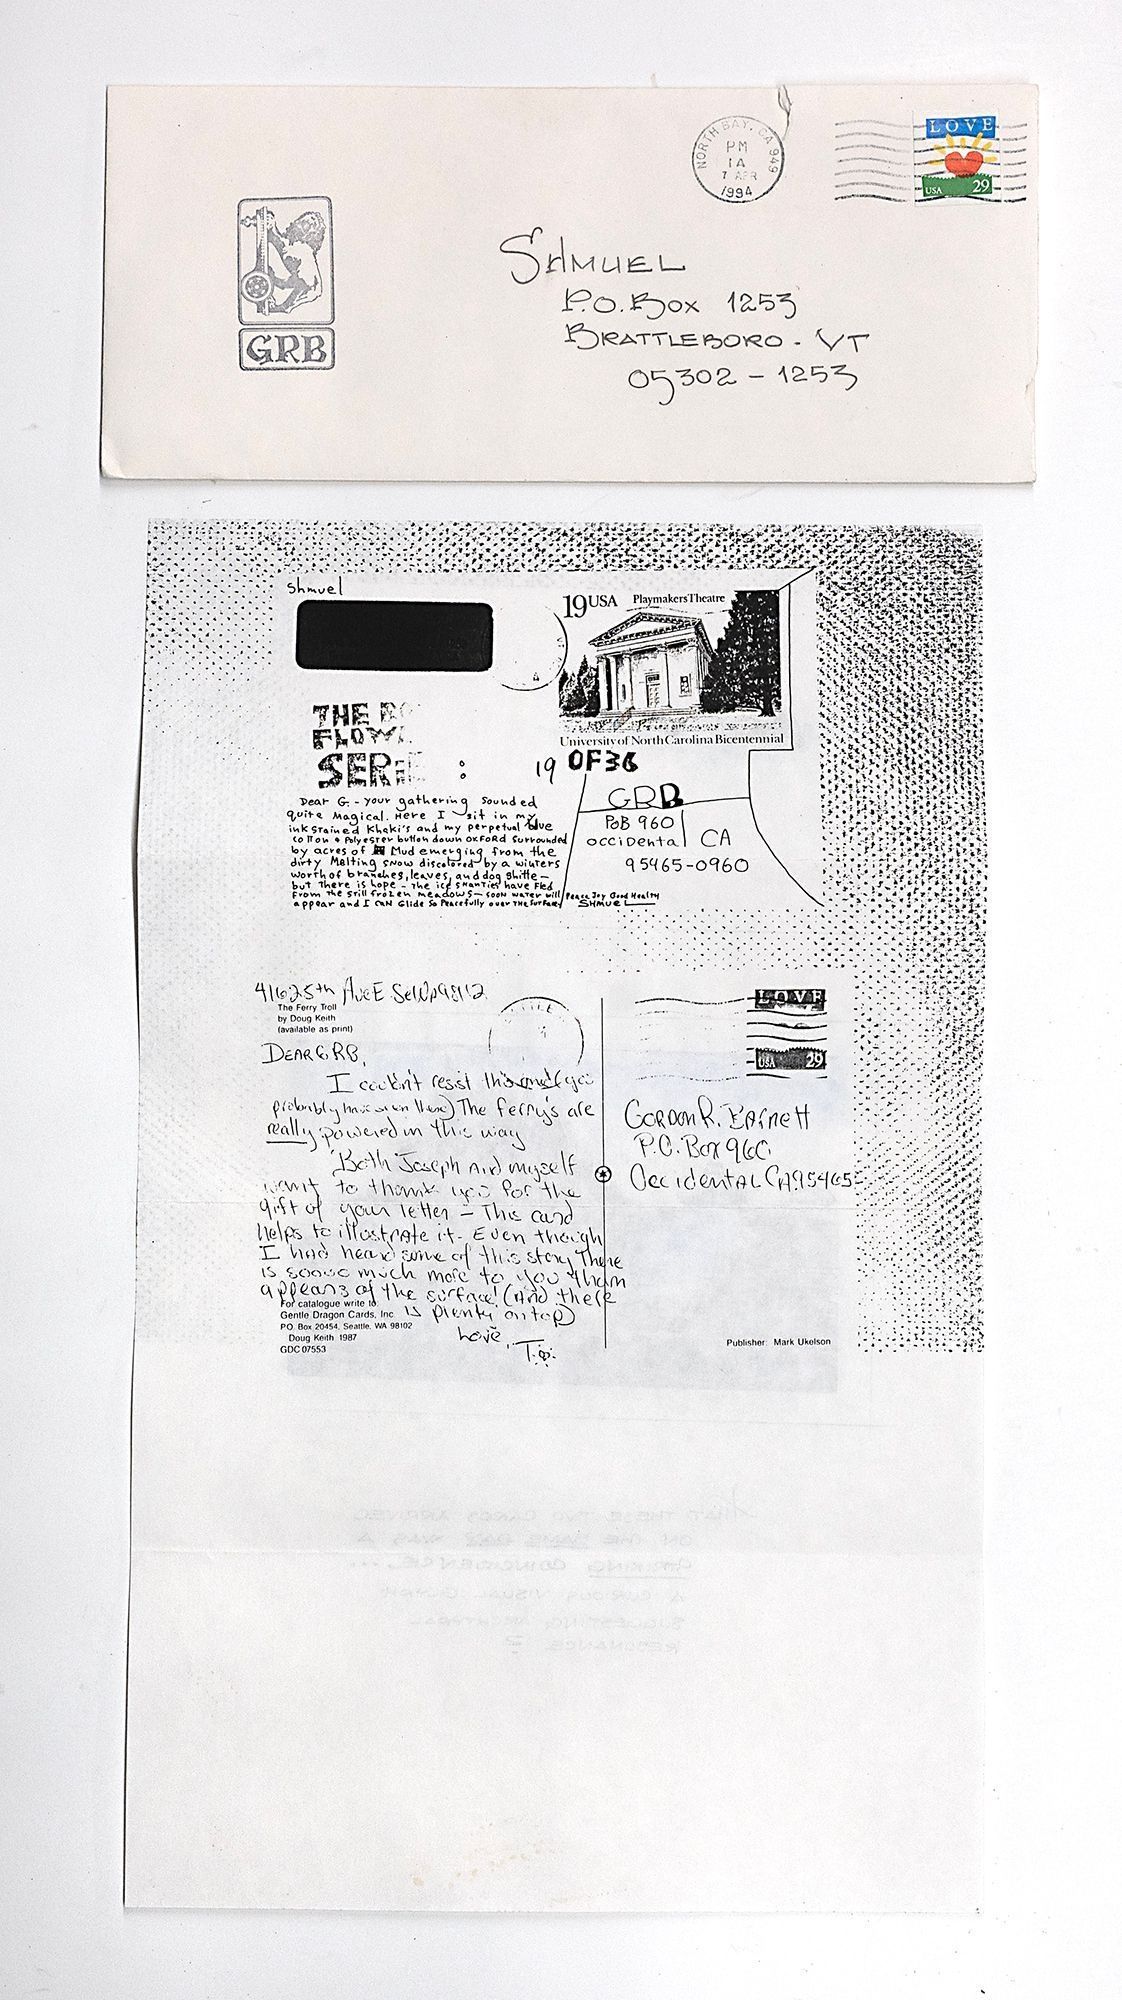 NORTH BAY, CA 949
PM
1A
7 APR
1994
LOVE
USA 29
GRB
SHMUEL
P.O. BOX 1253
BRATTLEBORO - VT
05302 - 1253
Shmuel
19 USA Playmakers Theatre
University of North Carolina Bicentennial
THE
FLOW
SERIE :
19 OF 36
GRB
POB 960
occidental CA
95465-0960
Dear G. - your gathering sounded
quite magical. Here I sit in my
ink stained Khaki's and my perpetual blue
cotton + Polyester button down OXFORD surrounded
by acres of Mud emerging from the
dirty Melting snow discolored by a winters
worth of branches, leaves, and dog shitte -
but There is hope - The ice SHANTIES have Fled
From The still frozen meadows - soon water will
appear and I CAN Glide So Peacefully over THE SurFace
Peace Joy Good Health
SHMUEL
Ave E. 98112
The Ferry Troll
by Doug Keith
(available as print)
LOVE
USA 29
DEAR GRB,
I couldn't resist this
probably have seen them) The ferry's are
really powered in this way
Both Joseph and myself
want to thank you for the
gift of your letter - This card
helps to illustrate it. Even though
I had heard some of this story There
is soooo much more to you than
appears of the surface! (And there
is plenty on top)
Love,
GORDON R.
P.O. Box 960
Occidental CA 95465
For catalogue write to:
Gentle Dragon Cards, Inc.
P.O. Box 20454, Seattle, WA 98102
Doug Keith 1987
GDC 07553
Publisher: Mark Ukelson